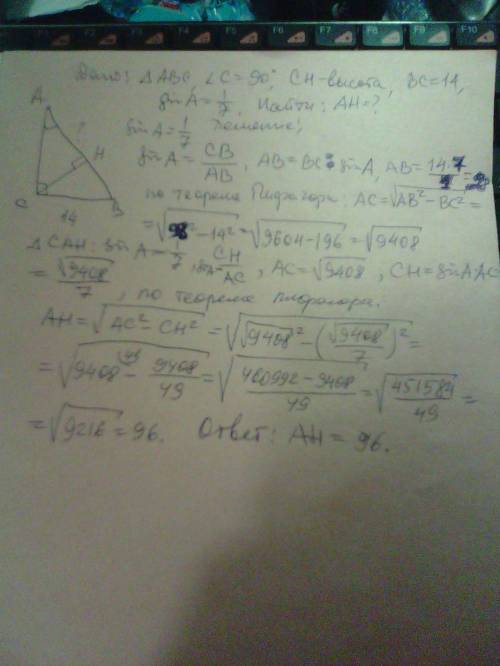 F6 F7 F8 F9 F10
Дано: △ABC, ∠C=90°, CH-высота, BC=14,
sin A = 1/7. Найти: AH=?
sin A = 1/7 Решение:
sin A = CB/AB, AB = BC : sin A, AB = 14·7/1 = 98
по теореме Пифагора: AC = √AB² - BC² =
= √98² - 14² = √9604 - 196 = √9408
△ CAH: sin A = 1/7, sin A = CH/AC, AC = √9408, CH = sin A·AC
= √9408/7, по теореме Пифагора:
AH = √AC² - CH² = √√9408² - (√9408/7)² =
= √9408 (49 - 9408/49 = √460992 - 9408/49 = √451584/49 =
= √9216 = 96. Ответ: AH = 96.
A
?
H
C
B
14